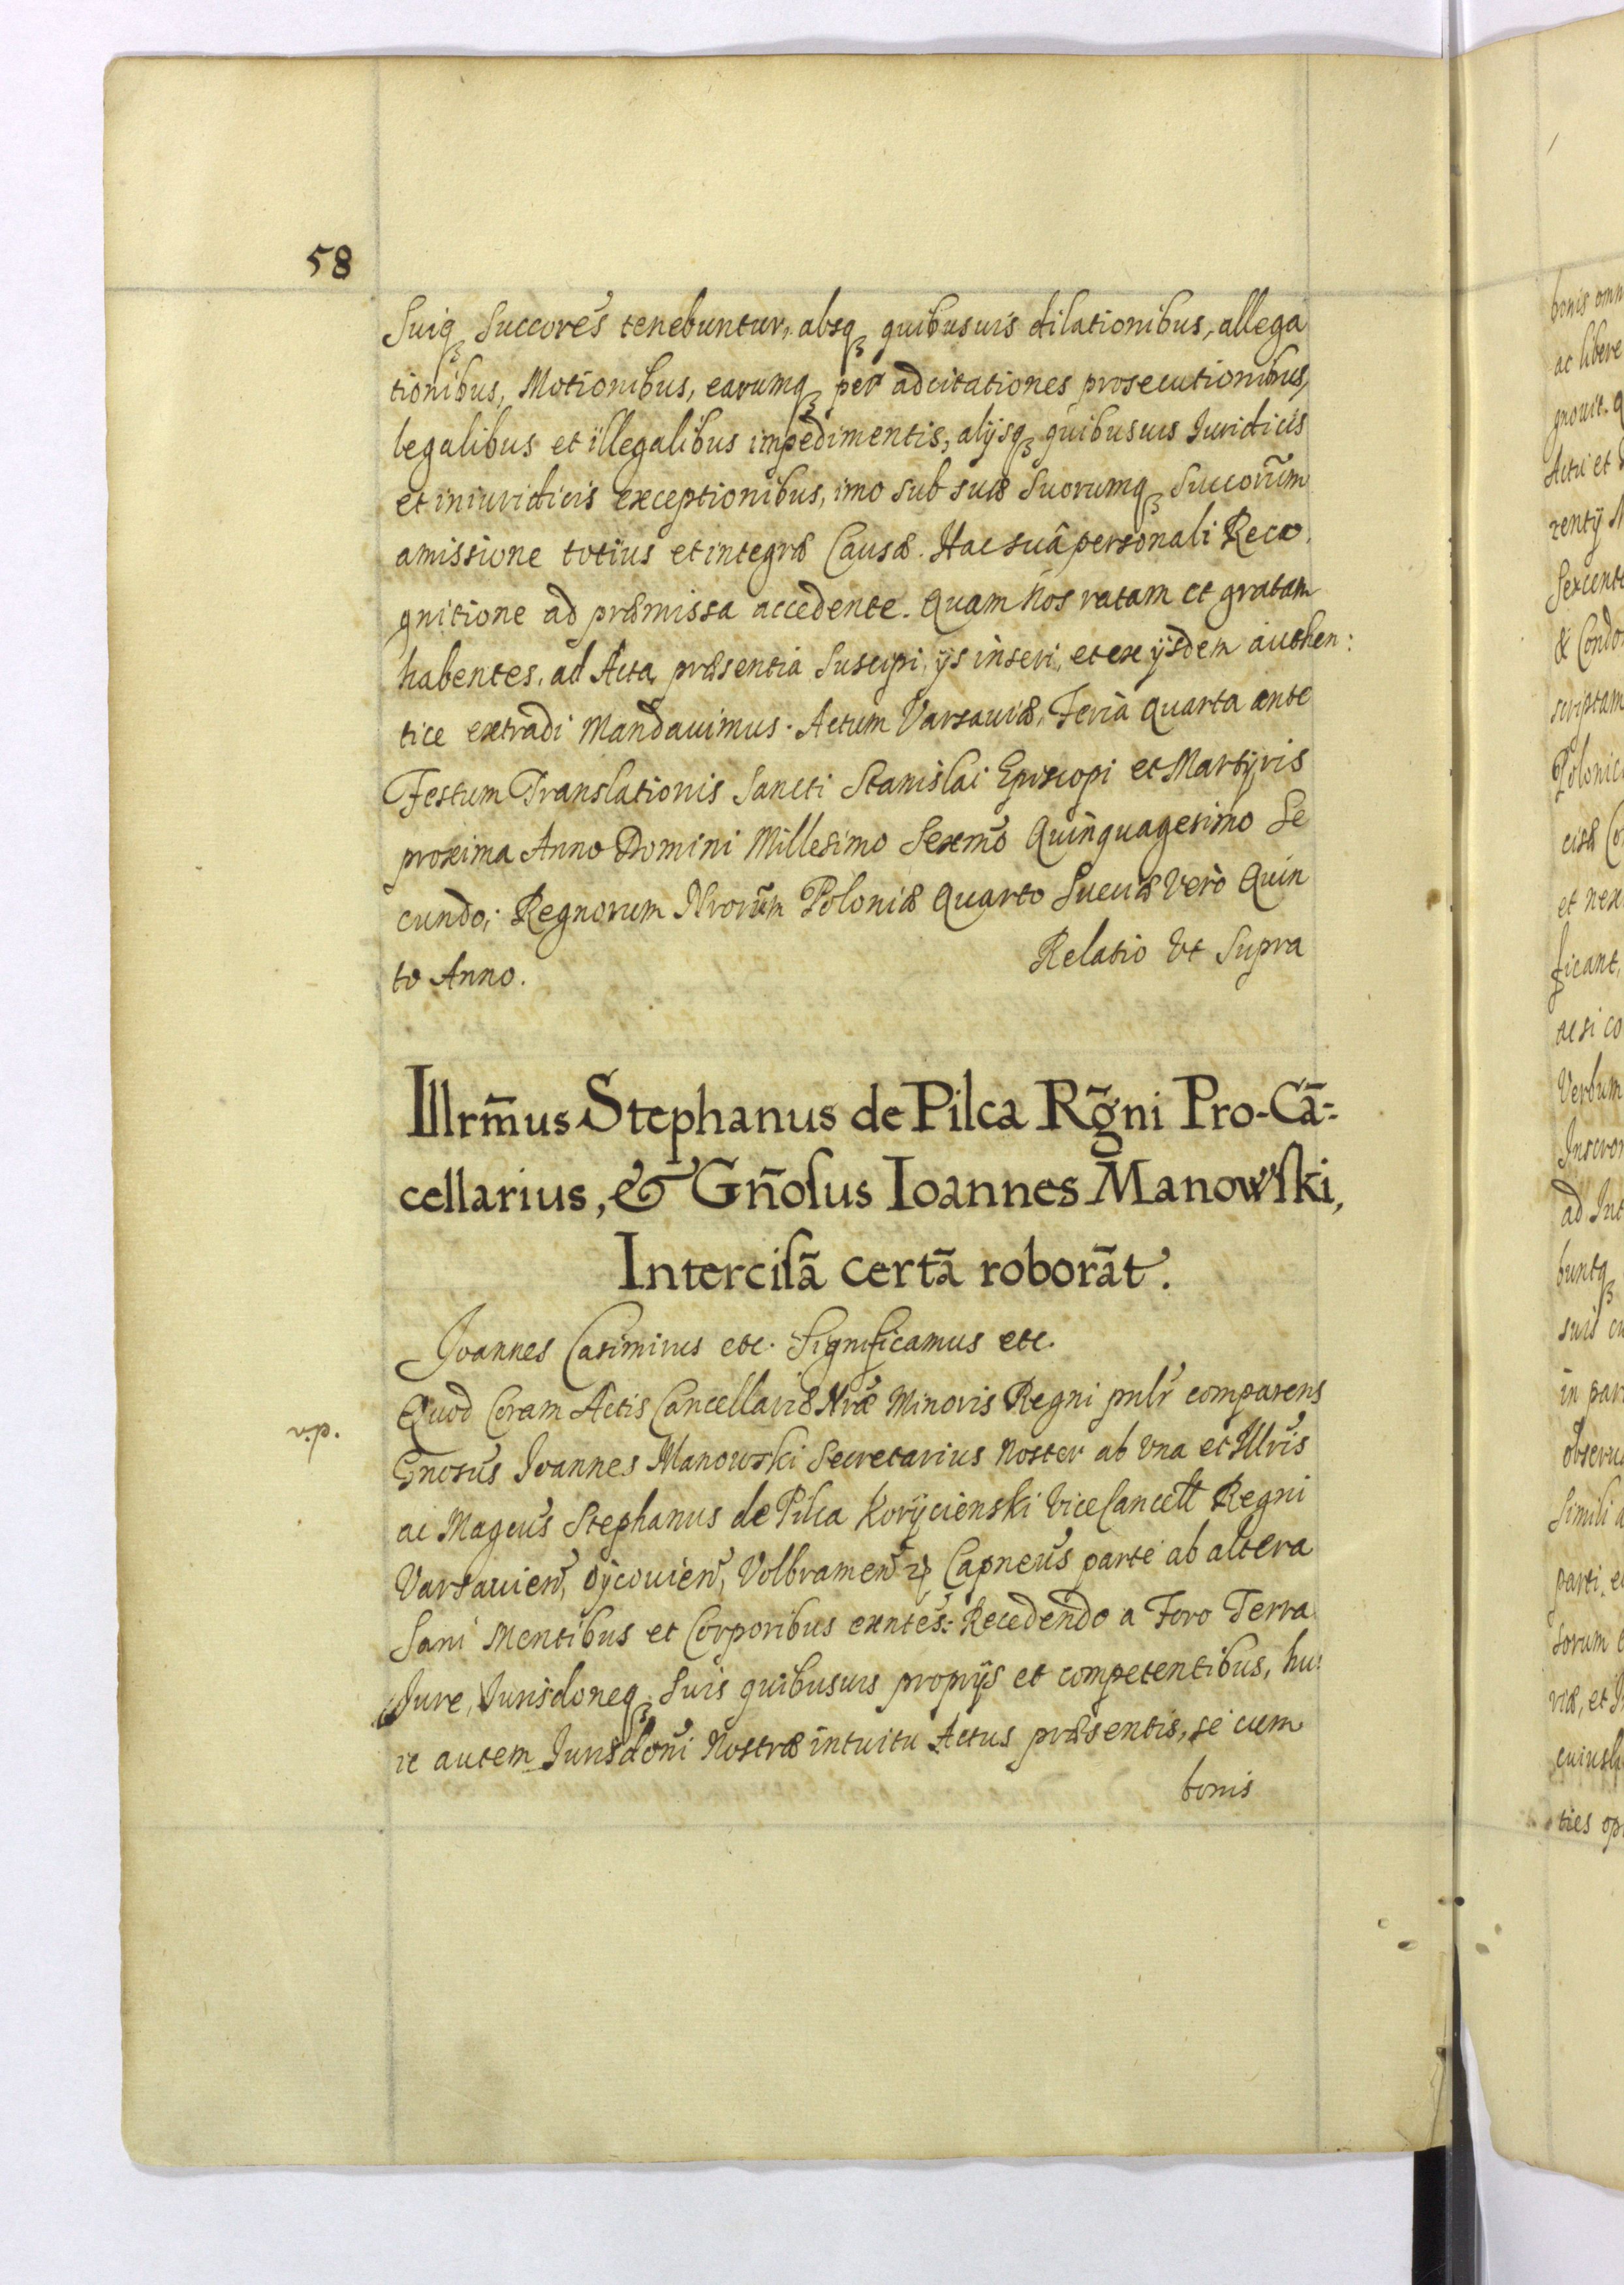 58
Suiq₃ Succores tenebuntur, absq₃ quibusuis dilationibus, allega
tionibus, Motionibus, earumq₃ per adcitationes prosecutionibus,
legalibus et illegalibus impedimentis, alijsq₃ quibusuis Iuridicis
et iniuridicis exceptionibus, imo sub suæ Suorumq₃ Succorũm
amissione totius et integræ Causæ. Hac suâ personali Reco
gnitione ad præmissa accedente. Quam Nos ratam et gratam
habentes, ad Acta præsentia Suscipi, ijs inseri, et ex ijsdem authen:
tice extradi Mandauimus. Actum Varsauiæ, Feria Quarta ante
Festum Translationis Sancti Stanislai Episcopi et Martyris
proxima Anno Domini Millesimo Sexmo Quinquagesimo Se
cundo; Regnorum Nrorũm Poloniæ Quarto Sueuiæ Verò Quin
to Anno.
Relatio Vt Supra
Illrm̃us Stephanus de Pilca Rg̃ni Pro-Cã-
cellarius, & Gñosus Ioannes Manowski,
Intercisã certã roborãt.
Joannes Casimirus etc. Significamus etc.
Quod Coram Actis Cancellariæ Nræ Minoris Regni pnlr comparens
Gnosus Joannes Manowski Secretarius Noster ab Vna et Illris
ac Magcus Stephanus de Pilca Korycienski Vice Cancell Regni
Varsauien, Oÿcouien, Volbramen Capneus parte ab altera
Sani Mentibus et Corporibus exntes: Recedendo a Foro Terra
Jure, Jurisdoneq₃ Suis quibusuis proprijs et competentibus, hu:
ic autem Jurisdoni Nostræ intuitu Actus præsentis, se cum
bonis